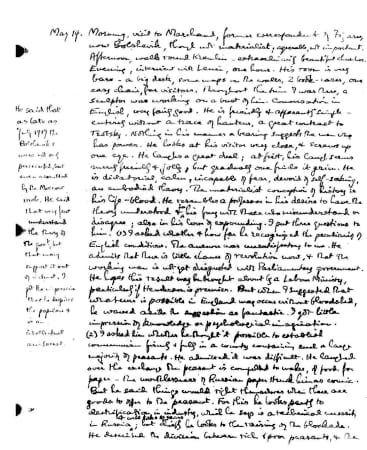 May 19. Morning, visit to Marchand, former correspondent of Figaro,
now Bolshevik, though not materialist, agreeable, not important.
Afternoon, walk round Kremlin - extraordinarily beautiful churches.
Evening, interview with Lenin, one hour. His room is very
bare - a big desk, some maps on the walls, 2 book-cases, one
easy chair, for visitors. Throughout the time I was there, a
sculptor was working on a bust of him. Conversation in
English, very fairly good. He is friendly & apparently simple -
entirely without a trace of hauteur, a great contrast to
Trotsky. Nothing in his manner or bearing suggests the man who
has power. He looks at his visitor very close, & screws up
one eye. He laughs a great deal; at first, his laugh seems
merely friendly & jolly, but gradually one finds it grim. He
is dictatorial, calm, incapable of fear, devoid of self-seeking,
an embodied theory. The materialist conception of history is
his life-blood. He resembles a professor in his desire to have the
theory understood & his fury with those who misunderstand or
disagree; also in his love of expounding. I put three questions to
him. (1) I asked whether & how far he recognized the peculiarity of
English conditions. The answer was unsatisfactory to me. He
admits that there is little chance of revolution now, & that the
working man is not yet disgusted with Parliamentary government.
He hopes this result may be brought about by a Labour Ministry,
particularly if Henderson is premier. But when I suggested that
whatever is possible in England may occur without bloodshed,
he waved aside the suggestion as fantastic. I got little
impression of knowledge or psychological imagination.
(2) I asked him whether he thought it possible to establish
communism firmly & fully in a country containing such a large
majority of peasants. He admitted it was difficult. He laughed
over the exchange the peasant is compelled to make, of food for
paper - the worthlessness of Russian paper struck him as comic.
But he said things would right themselves when there are
goods to offer to the peasant. For this he looks partly to
electrification in industry, which he says is a technical necessity
in Russia, but will take 10 years; but chiefly he looks to the raising of the blockade.
He described the division between rich & poor peasants, & the
He said that
as late as
July 1917 the
Bolsheviks
were not only
persecuted, but
even assaulted
by the Moscow
mob. He said
that very few
understand
the theory of
the Govt, but
that many
support it out
of instinct.